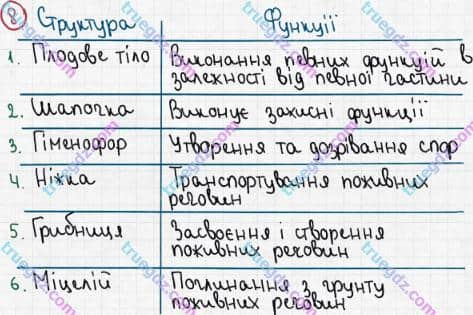 8 Структура Функції
1. Плодове тіло Виконання певних функцій в
залежності від певної частини
2. Шапочка Виконує захисні функції
3. Гіменофор Утворення та дозрівання спор
4. Ніжка Транспортування поживних
речовин
5. Грибниця Засвоєння і створення
поживних речовин
6. Міцелій Поглинання з грунту
поживних речовин
truegdz.com